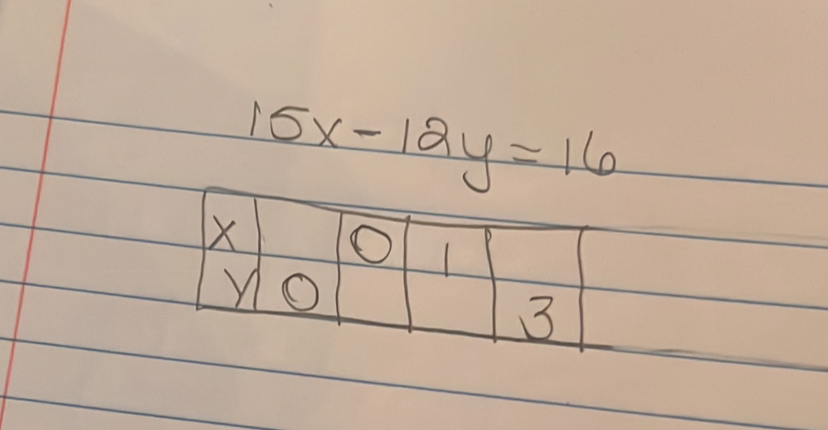 15x-12y=16
x 0 1
y 0 3